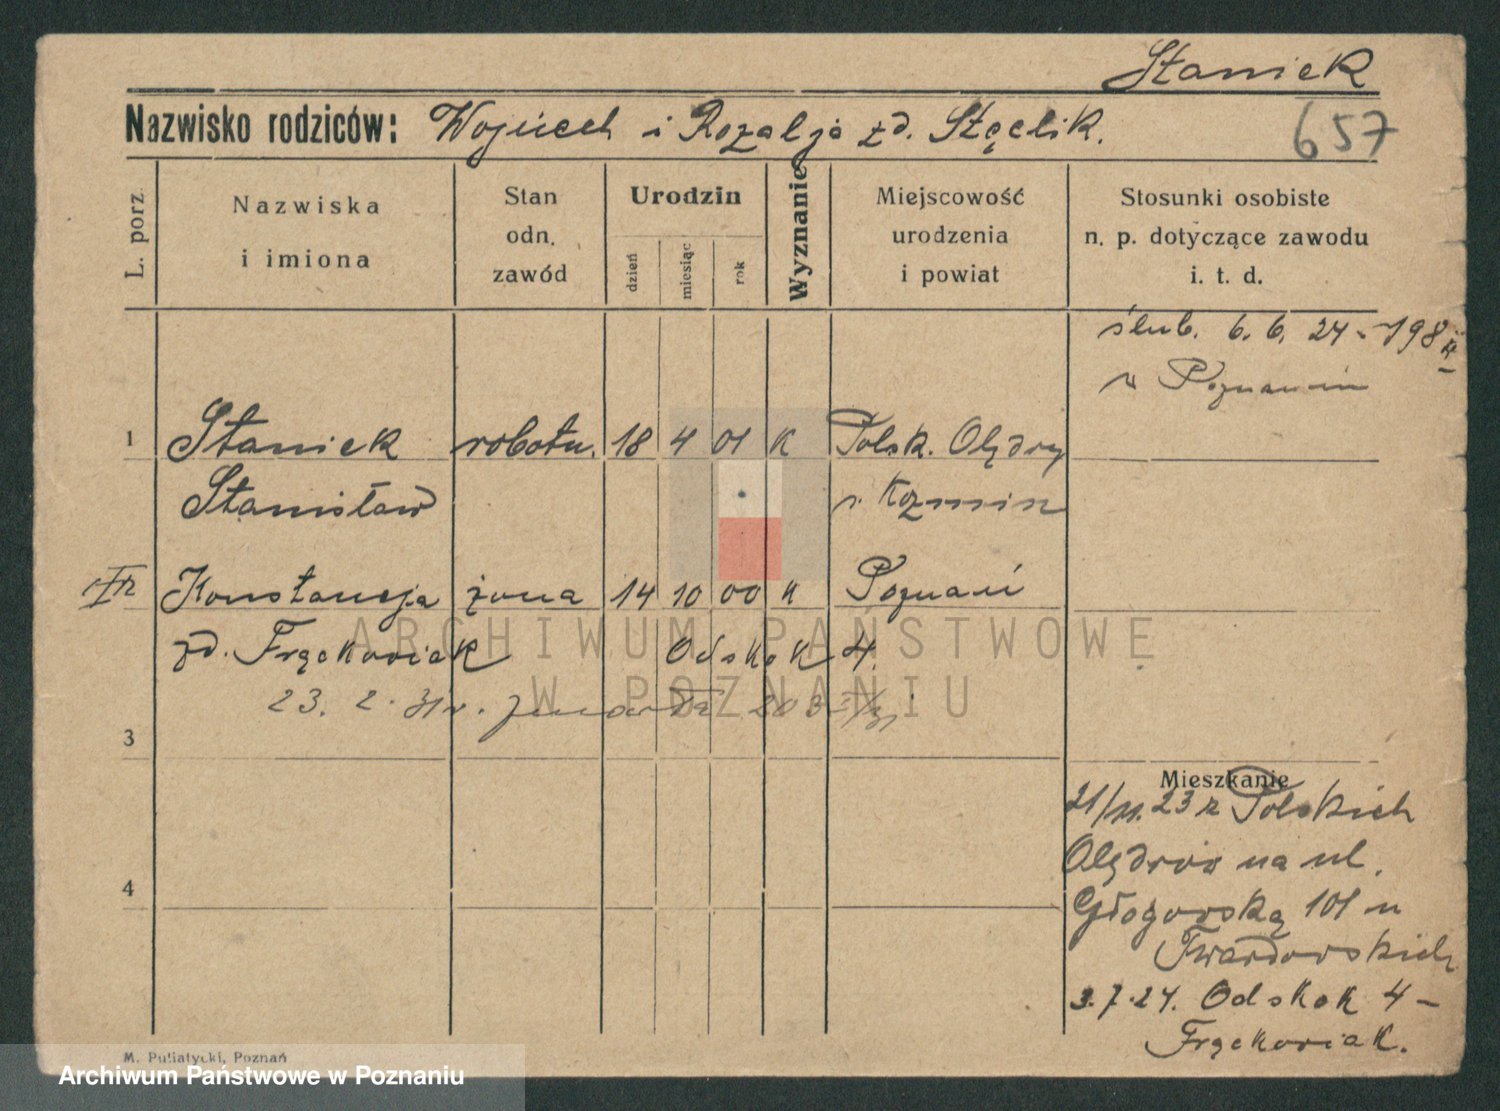 Staniek
Nazwisko rodziców: Wojciech i Rozalja zd. Stęclik.
657
L. porz
Nazwiska
i imiona
Stan
odn.
zawód
Urodzin
dzień
miesiąc
rok
Wyznanie
Miejscowość
urodzenia
i powiat
Stosunki osobiste
n. p. dotyczące zawodu
i. t. d.
ślub. 6. 6. 24 - 198
w Poznaniu
1 Staniek robotn. 18 4 01 K Polsk. Olędry
Stanisław Kozmin
Konstancja żona 14 10 00 K Poznań
zd. Frąckowiak Odskok 4.
23. 2. 31 r. zmarła 203
3
Mieszkanie
21/11. 23 z Polskich
Olędrów na ul.
4
Głogowską 101 u
Twardowskich
3.7.24. Odskok 4 -
Frąckowiak.
M. Puliatycki, Poznań
ARCHIWUM PAŃSTWOWE
W POZNANIU
Archiwum Państwowe w Poznaniu